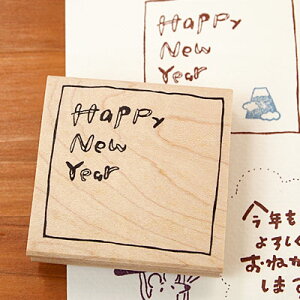 Happy
New
Year
Happy
New
Year
今年も
よろしく
おねが
しま